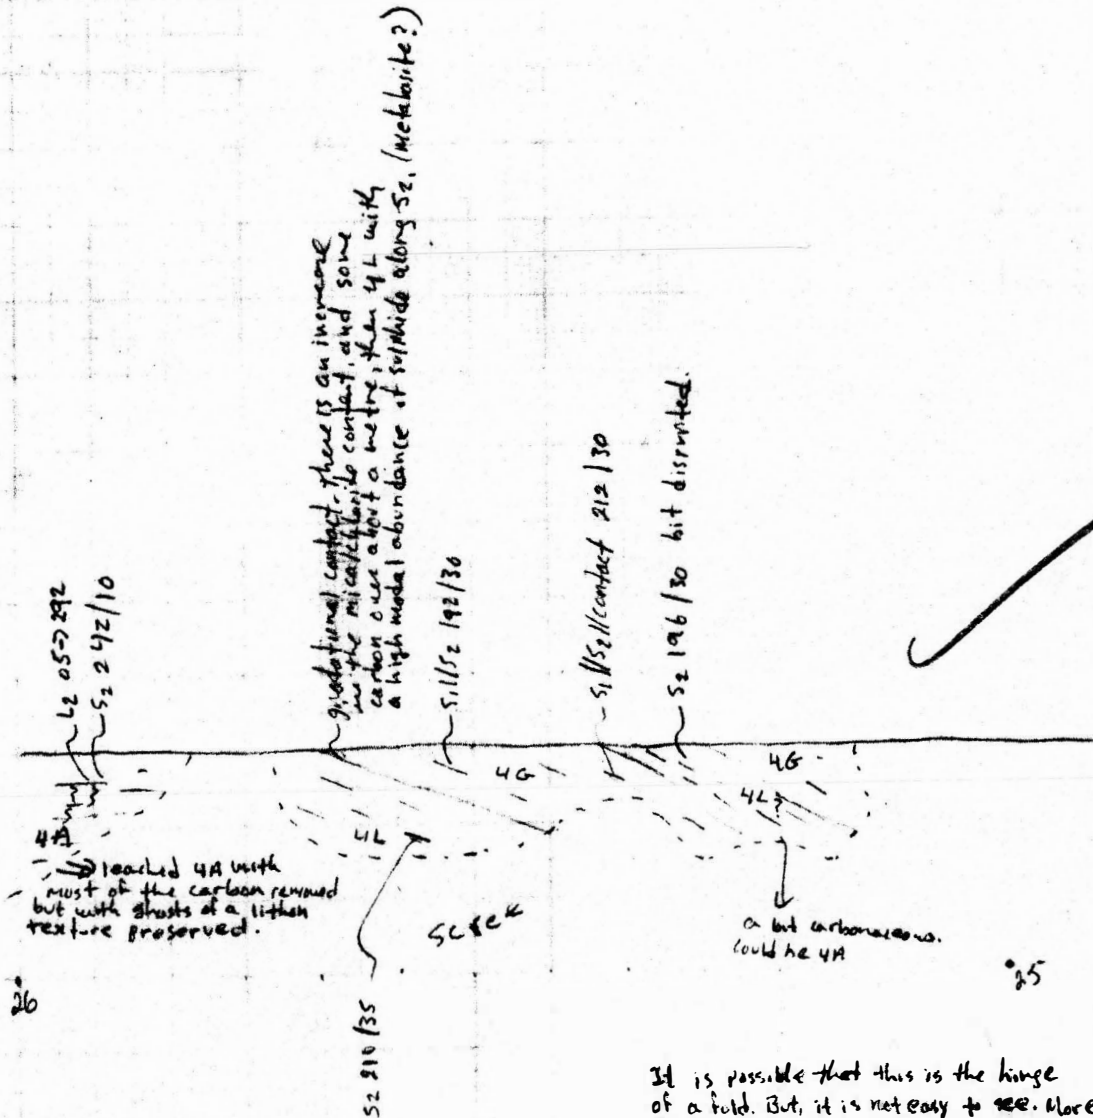 L2 05→292
S2 242/10
gradational contact. there is an increase
in the mica/chlorite content, and some
carbon over about a metre, then 4L with
a high modal abundance of sulphide along S2. (metabasite?)
S1//S2 192/30
S1//S2//contact 212/30
S2 196/30 bit disrupted
4G
4G
4L?
4A
4L
leached 4A with
most of the carbon removed
but with ghosts of a lithon
texture preserved.
a bit carbonaceous.
could be 4A
26
25
S2 210/35
It is possible that this is the hinge
of a fold. But, it is not easy to see. More